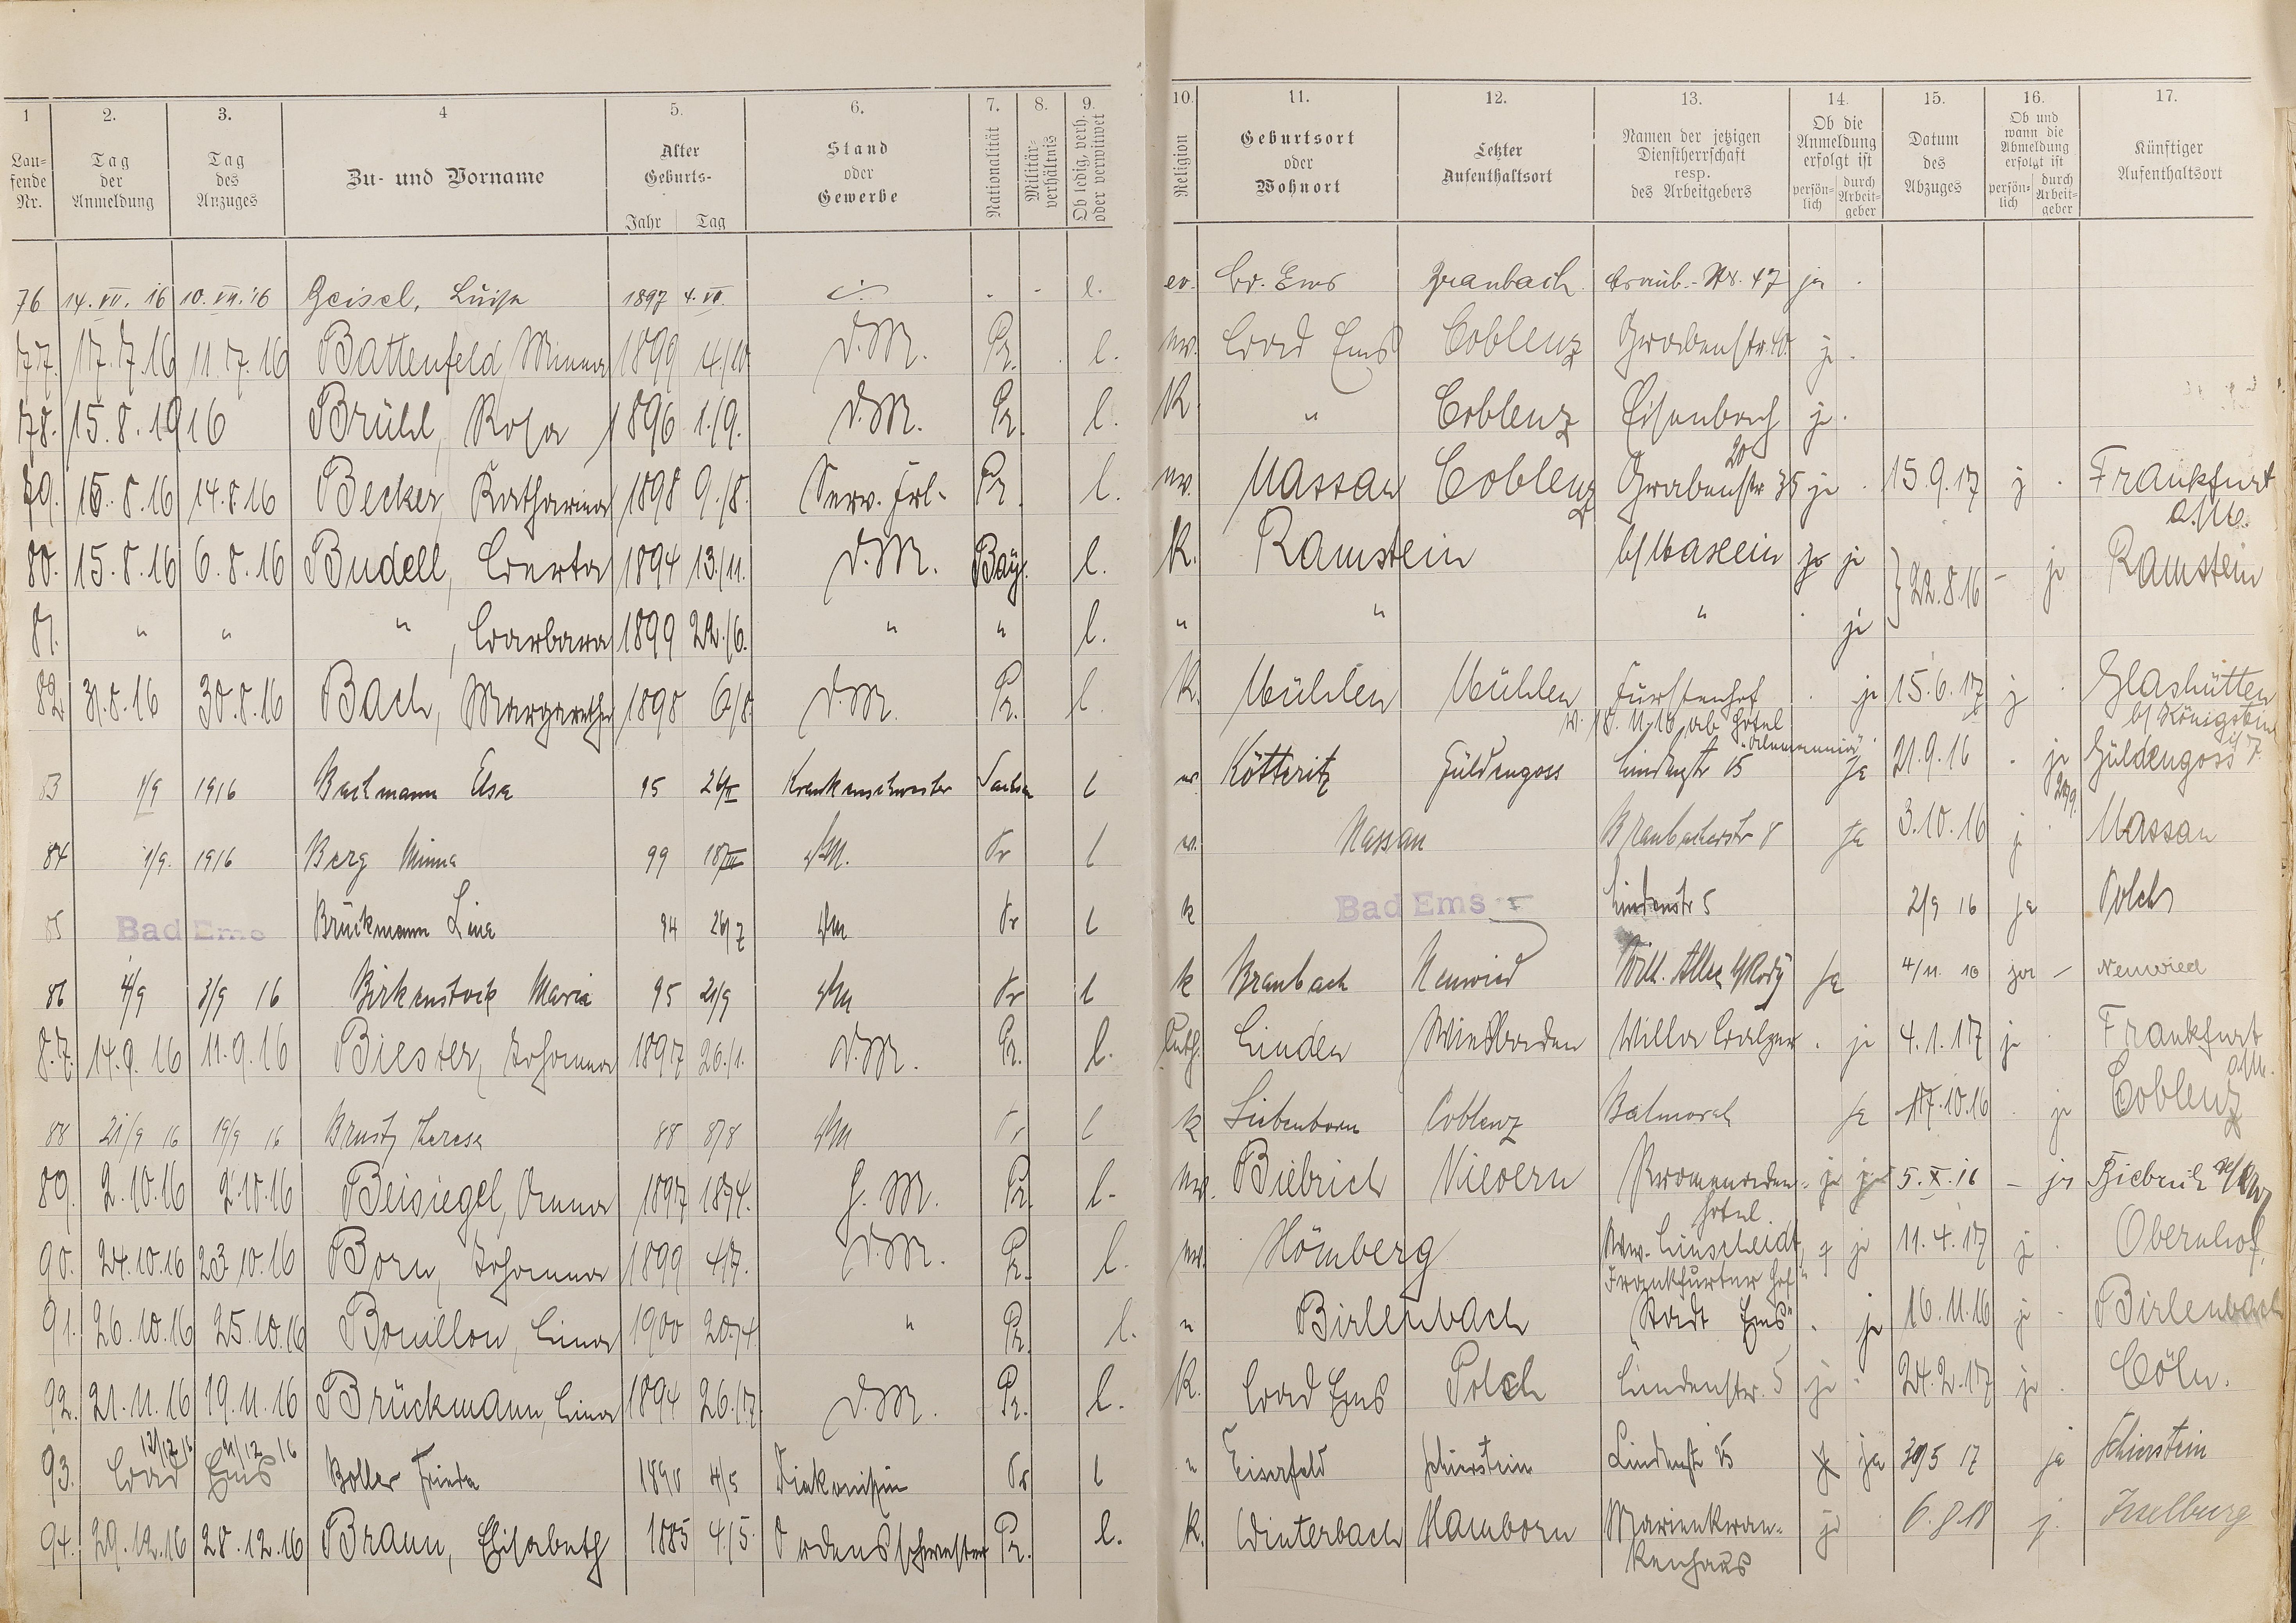 1 2. 3. 4 5. 6. 7. 8. 9. 10. 11. 12. 13. 14. 15. 16. 17.
Lau-
fende
Nr.
Tag
der
Anmeldung
Tag
des
Anzuges
Zu- und Vorname
Alter
Geburts-
Jahr Tag
Stand
oder
Gewerbe
Nationalität
Militär-
verhältnis
Ob ledig, verh.
oder verwitwet
Religion
Geburtsort
oder
Wohnort
Letzter
Aufenthaltsort
Namen der jetzigen
Dienstherrschaft
resp.
des Arbeitgebers
Ob die
Anmeldung
erfolgt ist
persön-
lich
durch
Arbeit-
geber
Datum
des
Abzuges
Ob und
wann die
Abmeldung
erfolgt ist
persön-
lich
durch
Arbeit-
geber
Künftiger
Aufenthaltsort
76 14. VII. 16 10. VII. 16 Geisel, Luise 1897 4. VII. - - l. ev. Bd. Ems Braubach Nr. 47 ja
77. 17.7.16 11.7.16 Battenfeld, Minna 1899 4./10 D.M. Pr. l. ev. Bad Ems Coblenz Grabenstr. j.
78. 15.8.1916 Brühl, Rosa 1896 1./9. D.M. Pr. l. K. " Coblenz Eisenbach j.
79. 15.8.16 14.8.16 Becker, Katharina 1898 9./8. Serv. Frl. Pr. l. ev. Nassau Coblenz Grabenstr 35 20 j. 15.9.17 j Frankfurt
a.M.
80. 15.8.16 6.8.16 Budell, Berta 1894 13./11. D.M. Bay. l. K. Ramstein b/ Maxein j. 22.8.16 - j Ramstein
81. " " " , Barbara 1899 22./6. " " l. " " " j.
82 31.8.16 30.8.16 Bach, Margarethe 1898 6/8. D.M. Pr. l. K. Mühlen Mühlen Fürstenhof j. 15.6.17 j Glashütten
b/ Königstein
v. 18.11.16 ab Hotel
"Alemannia"
83 1/9 1916 Bachmann Elsa 95 Krankenschwester Sachsen l Kötteritz Güldengoss Lindenstr 15 Ja 21.9.16 j Güldengoss
84 1/9. 1916 Berg Minna 99 18/III DM. Pr l Nassau Braubacherstr 8 Ja 3.10.16 j Nassau
85 Bad Ems Brückmann Lina 94 26/7 DM Pr l k Bad Ems Lindenstr 5 2/9 16 Ja Polch
86 4/9 3/9 16 Birkenstock Maria 95 21/9 DM Pr l k Braubach Neuwied Ja 4/11. 16 ja - Neuwied
87. 14.9.16 11.9.16 Biester, Johanna 1897 26./1. D.M. Pr. l. luth. Linden Wiesbaden Villa Balzer j. 4.1.17 j Frankfurt
a.M.
88 21/9 16 19/9 16 Brust, Therese 88 8/8 DM Pr l k Liebenborn Coblenz Balmoral Ja 17.10.16 j Coblenz
89. 2.10.16 2.10.16 Beisiegel, Anna 1897 18/4. H.M. Pr. l. ev. Biebrich Nievern Promenaden-
hotel
j. 5.X.16 - ja Biebrich
90. 24.10.16 23.10.16 Born, Johanna 1899 4/7. D.M. Pr. l. ev. Hömberg Ww. Linscheidt,
Frankfurter Hof
j. 11.4.17 j. Obernhof
91. 26.10.16 25.10.16 Bouillon, Lina 1900 20./4. " Pr. l. " Birlenbach "Stadt Ems" j. 16.11.16 j. Birlenbach
92. 21.11.16 19.11.16 Brückmann, Lina 1894 26./7. D.M. Pr. l. K. Bad Ems Polch Lindenstr. 5 j. 24.2.17 j. Cöln.
12/12 16 11/12 16
93. Bad Ems Boller Frieda 1890 4/5 Diakonissin Pr l " Eiserfeld Schierstein Lindenstr 25 ja 30/5 17 ja Schierstein
94. 29.12.16 28.12.16 Braun, Elisabeth 1885 4./5. Ordensschwester Pr. l. K. Winterbach Hamborn Marienkran-
kenhaus
j. 6.8.18 j. Isselburg